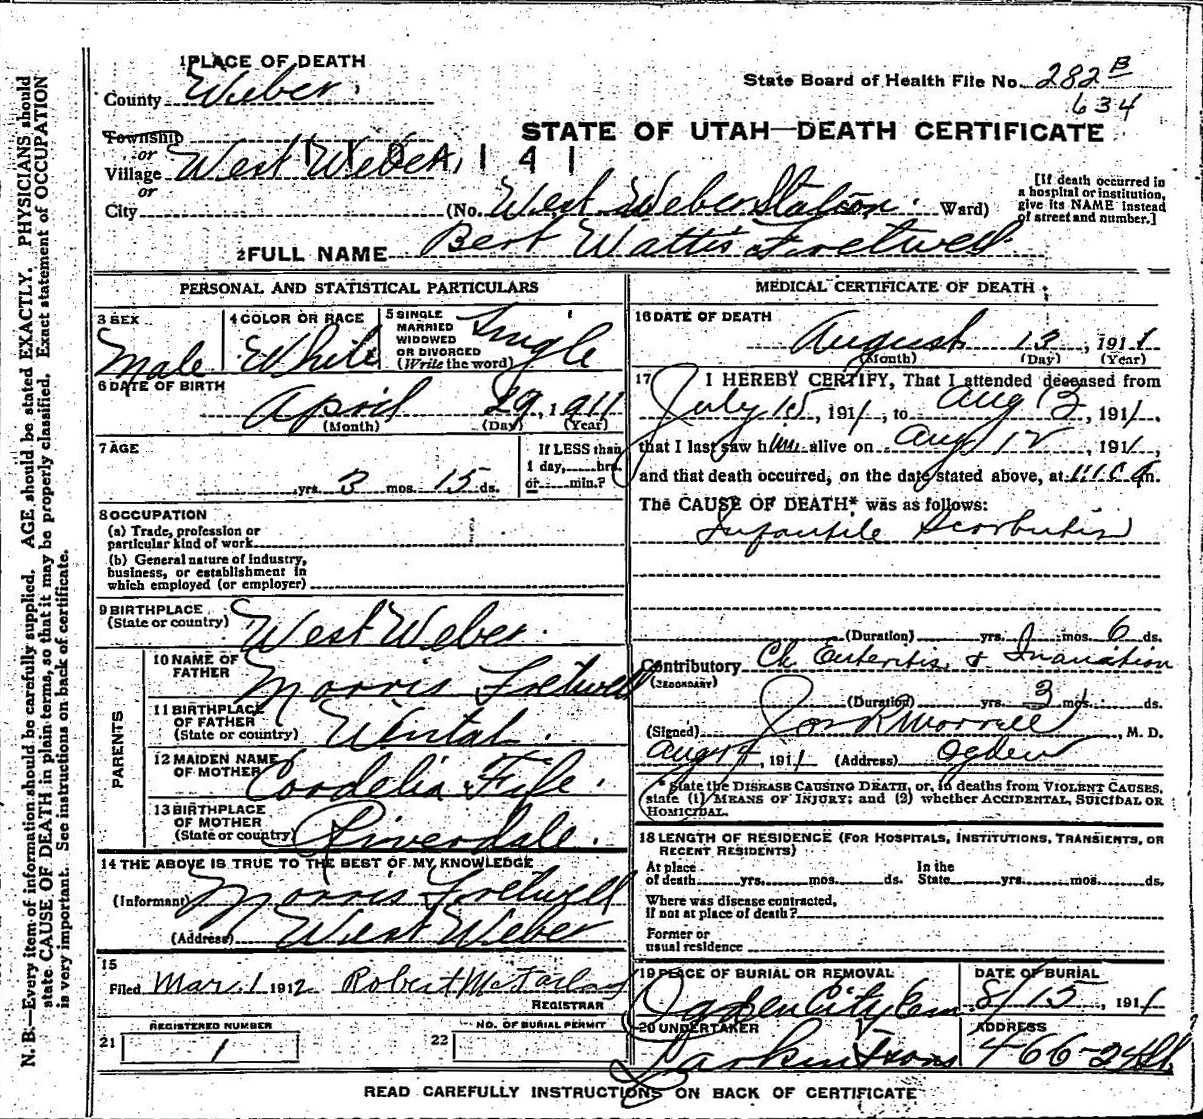 1 PLACE OF DEATH
County Weber.
State Board of Health File No. 282 B
634
Township
or
Village West Weber
STATE OF UTAH—DEATH CERTIFICATE
or
City (No. West Weber Station. Ward)
[If death occurred in a hospital or institution, give its NAME instead of street and number.]
2 FULL NAME Bert Wattis Fretwell.
PERSONAL AND STATISTICAL PARTICULARS
3 SEX
Male
4 COLOR OR RACE
White
5 SINGLE
MARRIED
WIDOWED
OR DIVORCED
(Write the word)
Single
6 DATE OF BIRTH
April 29, 1911
(Month) (Day) (Year)
7 AGE
yrs. 3 mos. 15 ds.
If LESS than
1 day, hrs.
or min.?
8 OCCUPATION
(a) Trade, profession or
particular kind of work
(b) General nature of industry,
business, or establishment in
which employed (or employer)
9 BIRTHPLACE
(State or country) West Weber.
PARENTS
10 NAME OF
FATHER Morris Fretwell
11 BIRTHPLACE
OF FATHER
(State or country)
12 MAIDEN NAME
OF MOTHER Cordelia Fife.
13 BIRTHPLACE
OF MOTHER
(State or country) Riverdale.
14 THE ABOVE IS TRUE TO THE BEST OF MY KNOWLEDGE
(Informant) Morris Fretwell
(Address) West Weber
15
Filed Mar. 1 1912 Robert McFarland
REGISTRAR
REGISTERED NUMBER
21 1
NO. OF BURIAL PERMIT
22
MEDICAL CERTIFICATE OF DEATH
16 DATE OF DEATH
August 13, 1911
(Month) (Day) (Year)
17 I HEREBY CERTIFY, That I attended deceased from
July 15, 1911, to Aug 13, 1911,
that I last saw him alive on Aug 12, 1911,
and that death occurred, on the date stated above, at m.
The CAUSE OF DEATH* was as follows:
Infantile Scorbutis
(Duration) yrs. mos. 6 ds.
Contributory Ch Enteritis & Inanition
(SECONDARY)
(Duration) yrs. 3 mos. ds.
(Signed) Jos R Morrell, M. D.
1911 (Address) Ogden
* State the DISEASE CAUSING DEATH, or, in deaths from VIOLENT CAUSES,
state (1) MEANS OF INJURY; and (2) whether ACCIDENTAL, SUICIDAL OR
HOMICIDAL.
18 LENGTH OF RESIDENCE (FOR HOSPITALS, INSTITUTIONS, TRANSIENTS, OR
RECENT RESIDENTS)
At place In the
of death yrs. mos. ds. State yrs. mos. ds.
Where was disease contracted,
if not at place of death?
Former or
usual residence
19 PLACE OF BURIAL OR REMOVAL
Ogden City Cem
DATE OF BURIAL
8/15, 1911
20 UNDERTAKER
Larkin & Sons
ADDRESS
466-24th
READ CAREFULLY INSTRUCTIONS ON BACK OF CERTIFICATE
N. B.—Every item of information should be carefully supplied. AGE should be stated EXACTLY. PHYSICIANS should
state CAUSE OF DEATH in plain terms, so that it may be properly classified. Exact statement of OCCUPATION
is very important. See instructions on back of certificate.